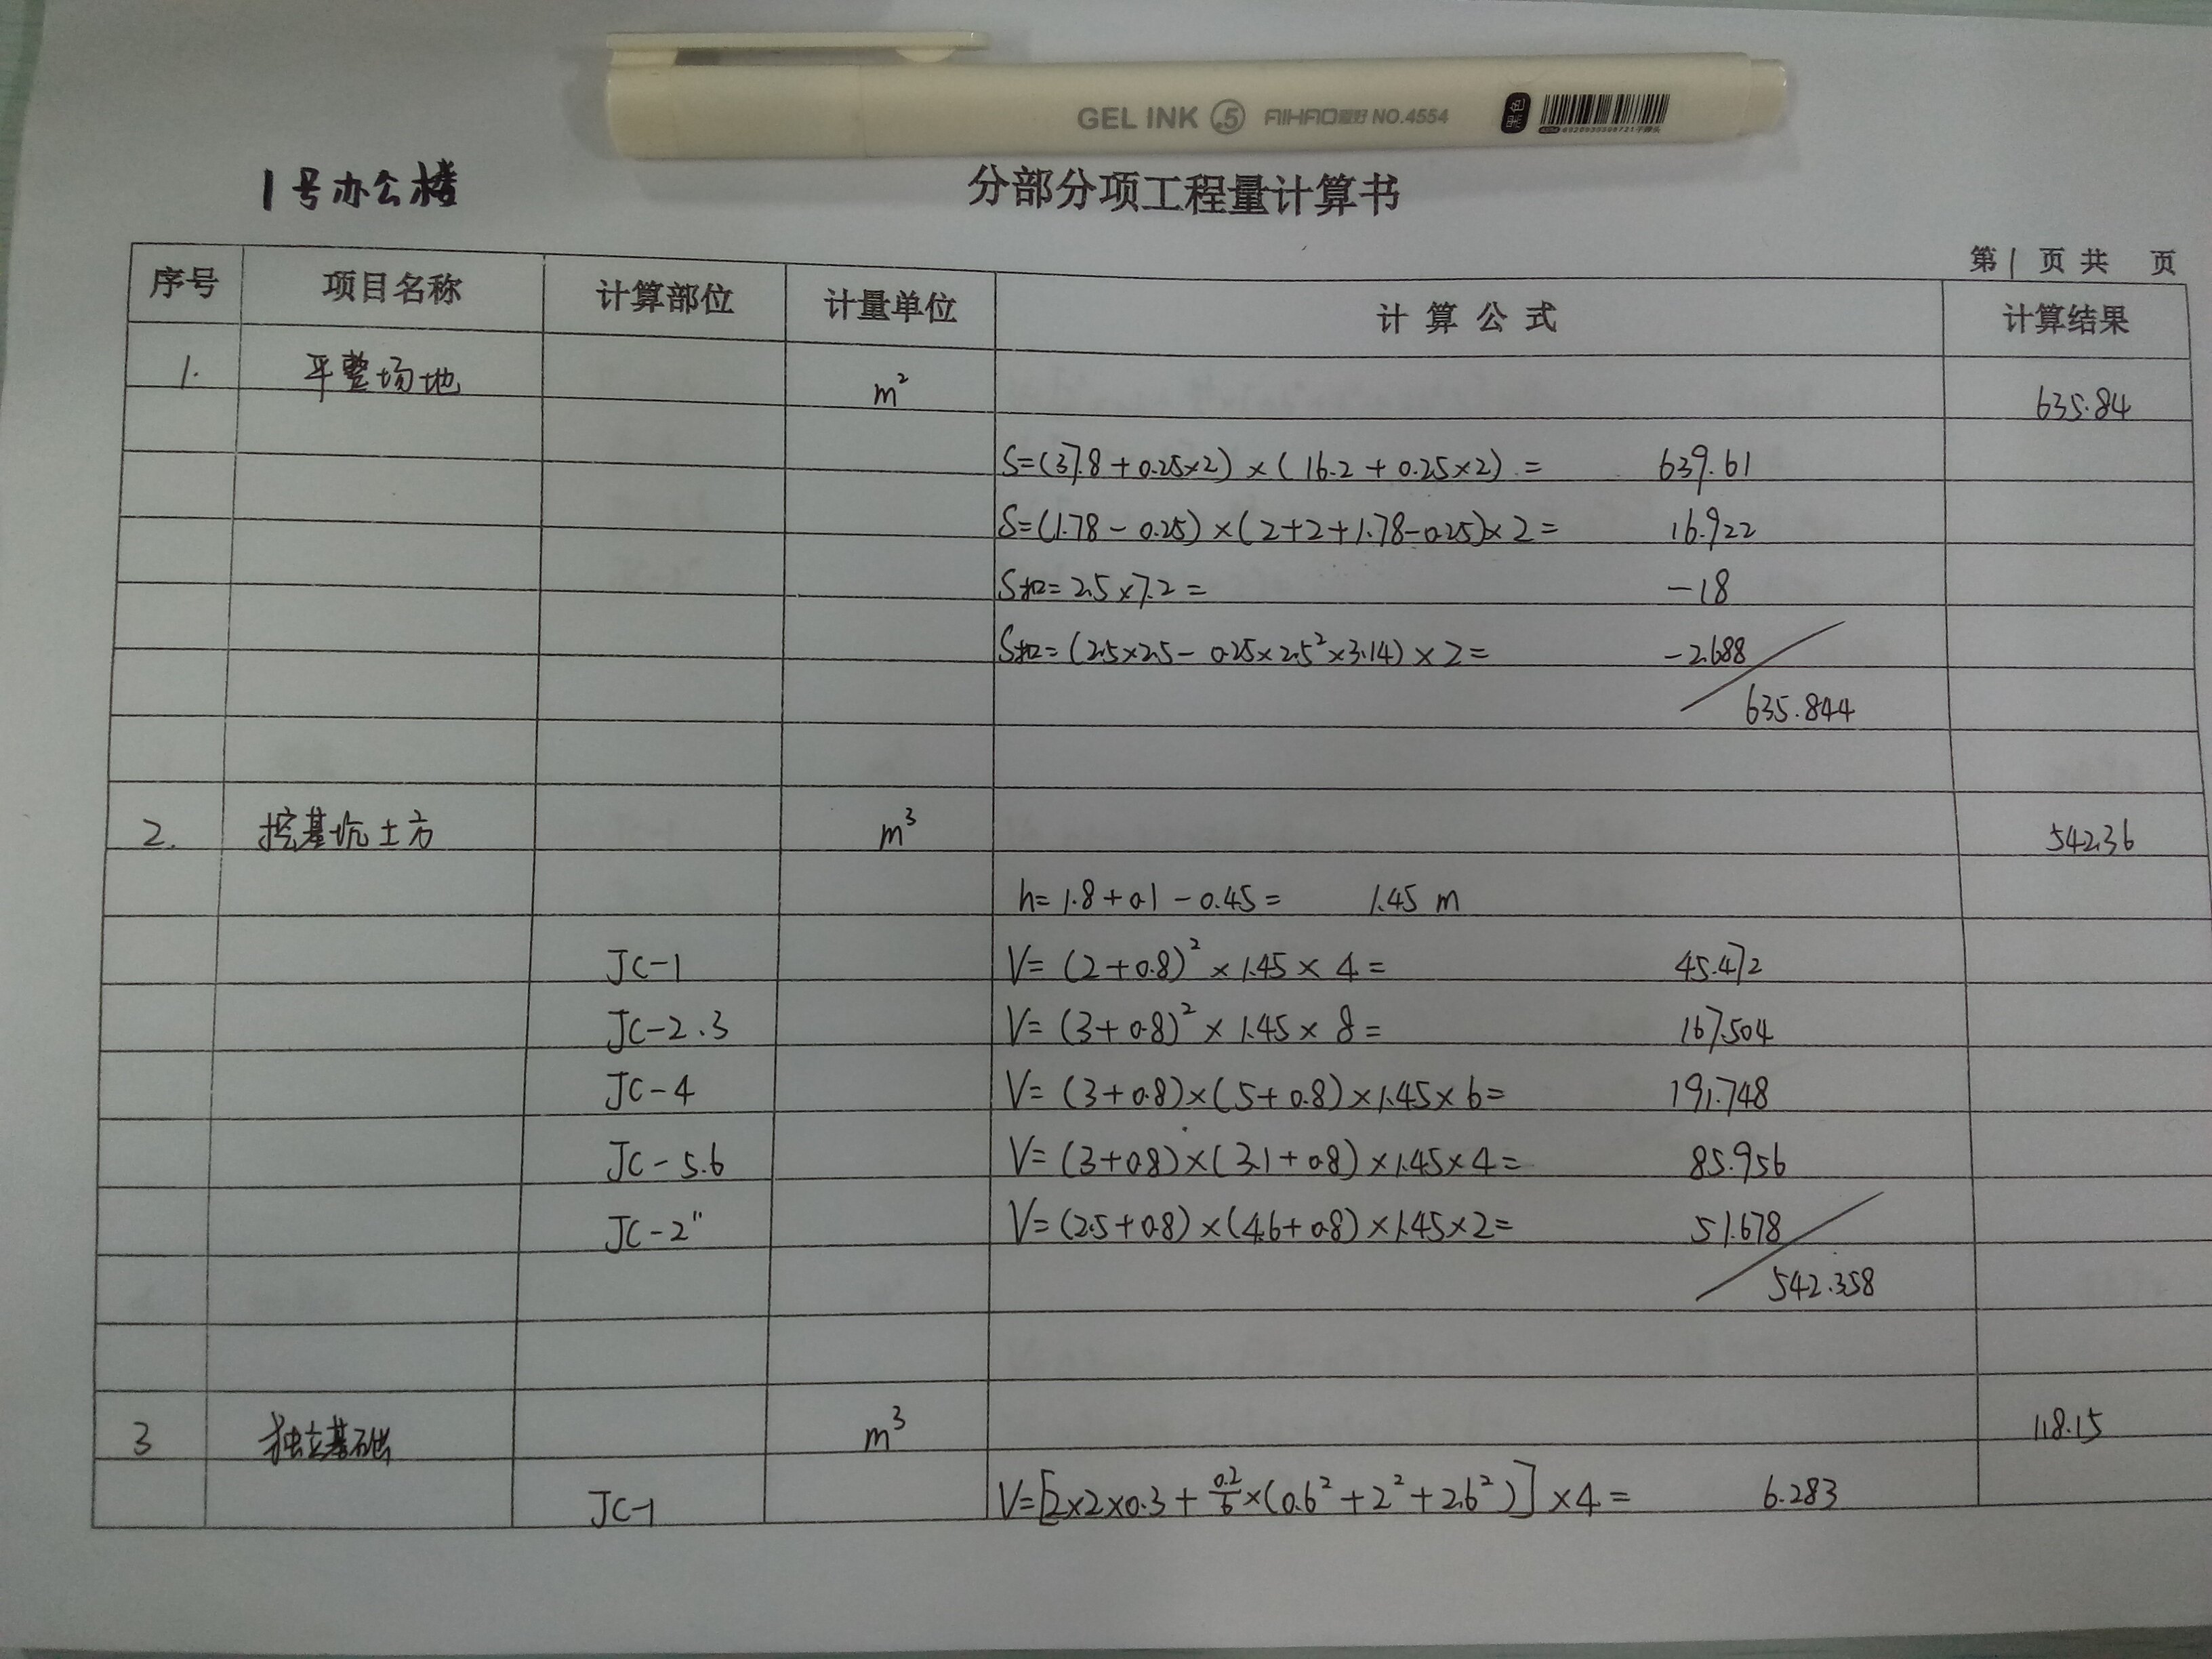 GEL INK .5 AIHAO爱好 NO.4554 黑色
1号办公楼
分部分项工程量计算书
第1页共 页
序号 项目名称 计算部位 计量单位 计算公式 计算结果
1. 平整场地 m² 635.84
S=(37.8+0.25×2)×(16.2+0.25×2)= 639.61
S=(1.78-0.25)×(2+2+1.78-0.25)×2= 16.922
S扣=2.5×7.2= -18
S扣=(2.5×2.5-0.25×2.5²×3.14)×2= -2.688
635.844
2. 挖基坑土方 m³ 542.36
h=1.8+0.1-0.45= 1.45 m
JC-1 V=(2+0.8)²×1.45×4= 45.472
JC-2.3 V=(3+0.8)²×1.45×8= 167.504
JC-4 V=(3+0.8)×(5+0.8)×1.45×6= 191.748
JC-5.6 V=(3+0.8)×(3.1+0.8)×1.45×4= 85.956
JC-2" V=(2.5+0.8)×(4.6+0.8)×1.45×2= 51.678
542.358
3 独立基础 m³ 118.15
JC-1 V=[2×2×0.3+0.2/6×(0.6²+2²+2.6²)]×4= 6.283